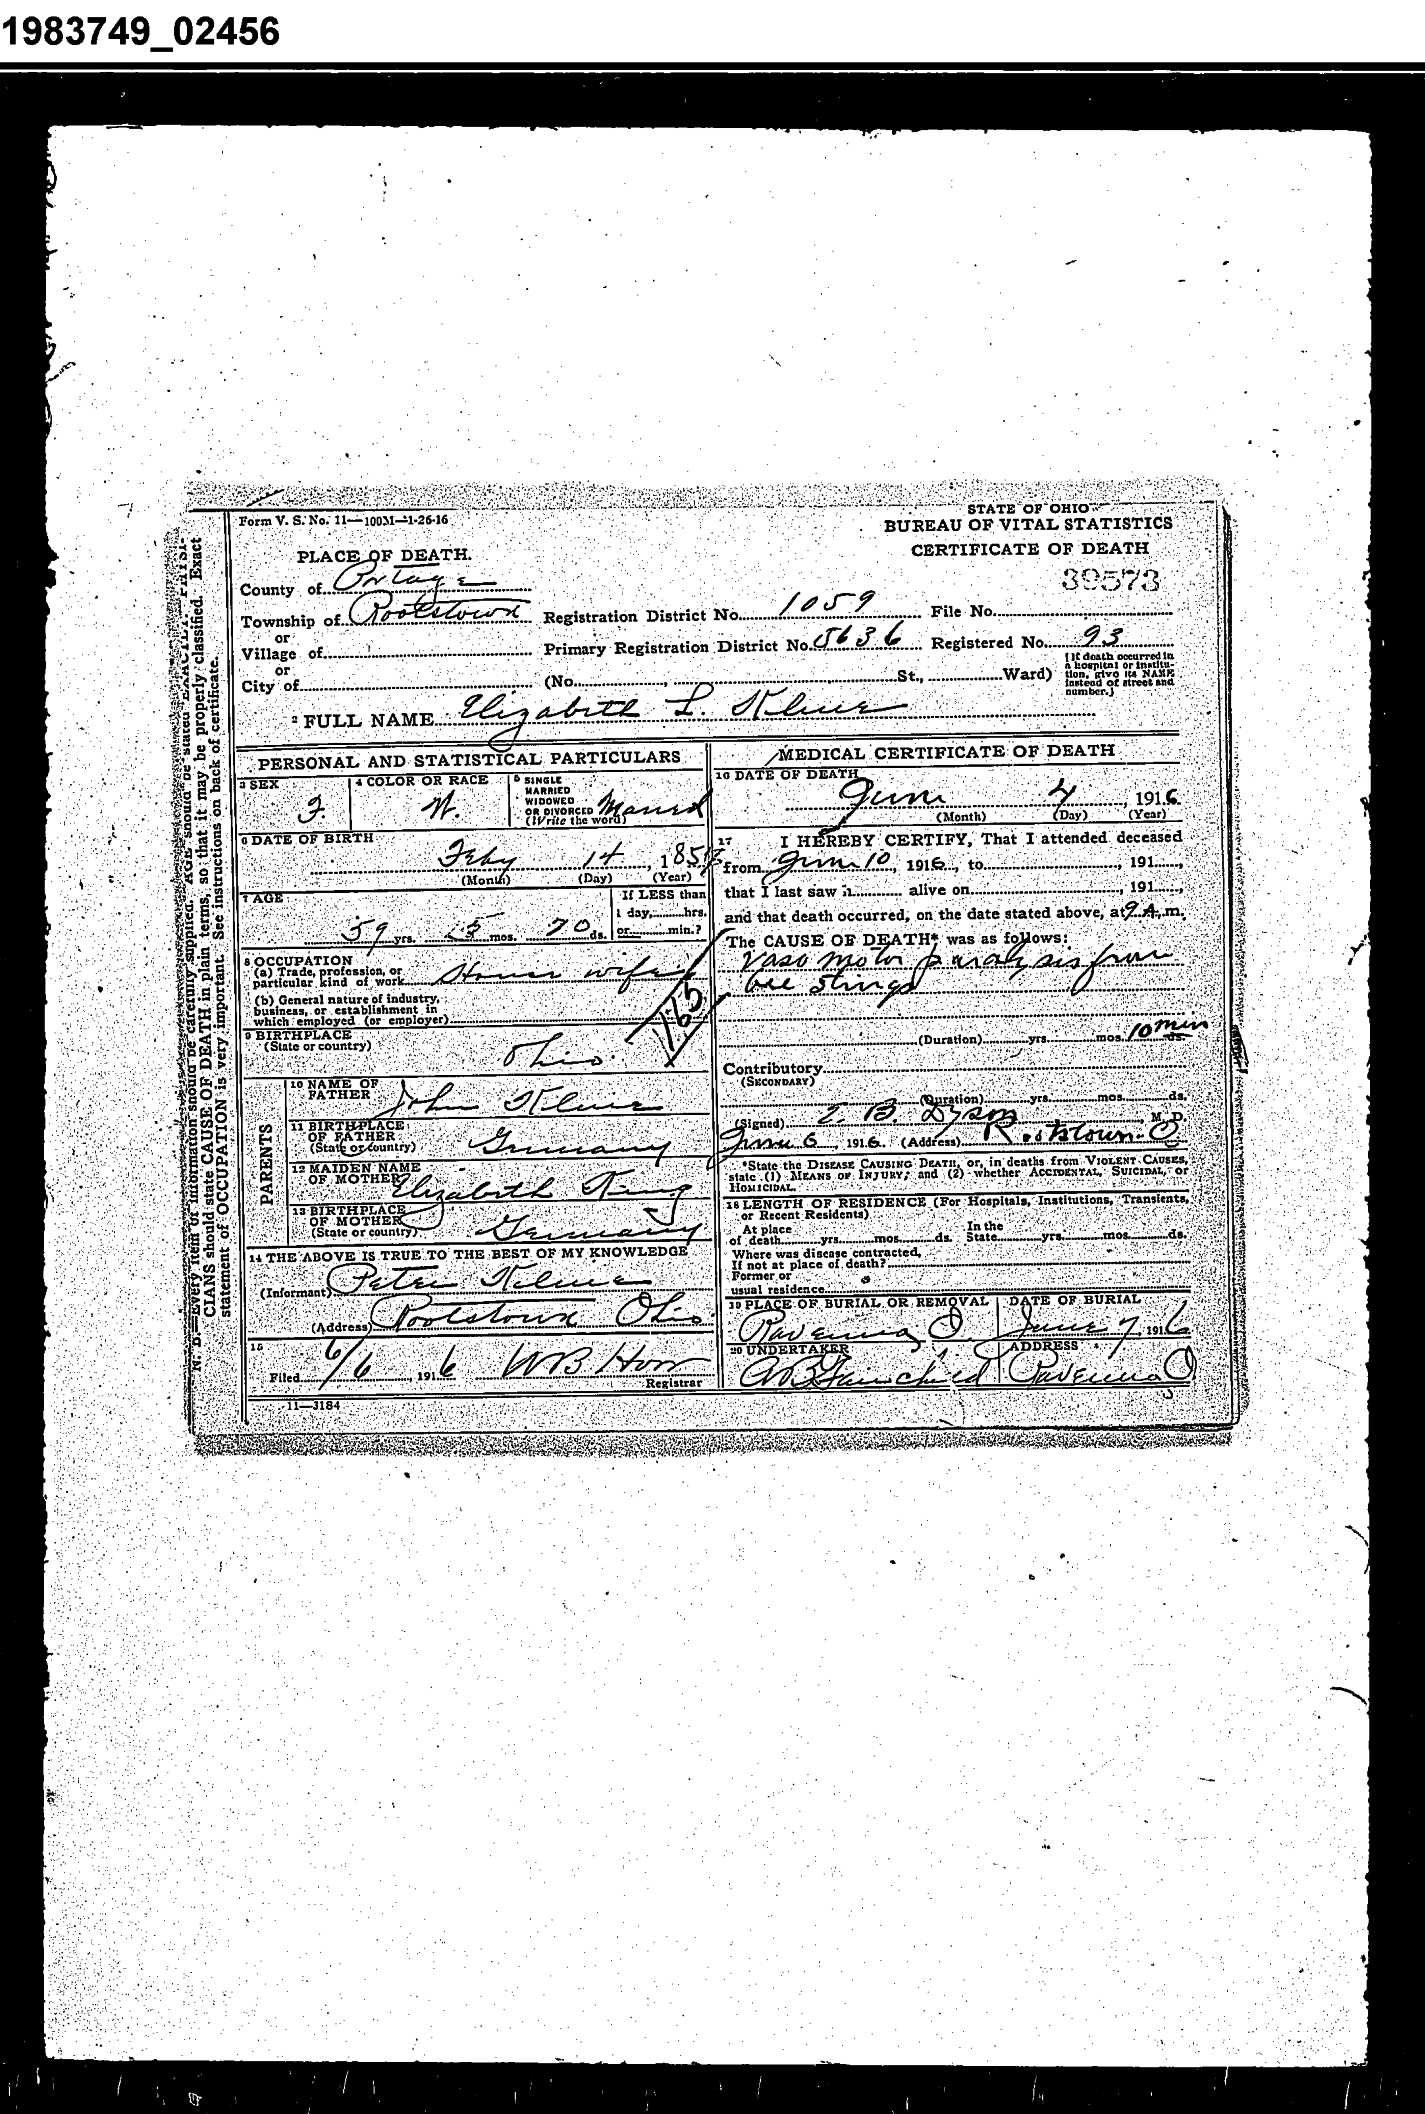 1983749_02456
Form V. S. No. 11—100M—1-26-16
STATE OF OHIO
BUREAU OF VITAL STATISTICS
CERTIFICATE OF DEATH
39573
PLACE OF DEATH.
County of Portage
Township of Rootstown Registration District No. 1059 File No.
or
Village of Primary Registration District No. 5636 Registered No. 93
or
City of (No. , St., Ward)
[If death occurred in
a hospital or institu-
tion, give its NAME
instead of street and
number.]
2 FULL NAME Elizabeth L. Kline
PERSONAL AND STATISTICAL PARTICULARS
3 SEX F.
4 COLOR OR RACE W.
5 SINGLE
MARRIED
WIDOWED
OR DIVORCED
(Write the word) Married
6 DATE OF BIRTH
Feby 14, 185
(Month) (Day) (Year)
7 AGE
59 yrs. mos. 20 ds.
If LESS than
1 day, hrs.
or min.?
8 OCCUPATION
(a) Trade, profession, or
particular kind of work House wife
(b) General nature of industry,
business, or establishment in
which employed (or employer)
165
9 BIRTHPLACE
(State or country) Ohio.
PARENTS
10 NAME OF
FATHER John Kline
11 BIRTHPLACE
OF FATHER
(State or country) Germany
12 MAIDEN NAME
OF MOTHER Elizabeth King
13 BIRTHPLACE
OF MOTHER
(State or country) Germany
14 THE ABOVE IS TRUE TO THE BEST OF MY KNOWLEDGE
(Informant) Peter Kline
(Address) Rootstown Ohio
15
Filed 6/6, 1916 WB Horr
Registrar
11—3184
MEDICAL CERTIFICATE OF DEATH
16 DATE OF DEATH
June 4, 1916
(Month) (Day) (Year)
17 I HEREBY CERTIFY, That I attended deceased
from June 10, 1916, to , 191 ,
that I last saw h alive on , 191 ,
and that death occurred, on the date stated above, at 9 A. m.
The CAUSE OF DEATH* was as follows:
Vaso motor paralysis from
bee stings
(Duration) yrs. mos. 10 min ds.
Contributory
(SECONDARY)
(Duration) yrs. mos. ds.
(Signed) E. B. Dyson M. D.
June 6, 1916. (Address) Rootstown O
*State the DISEASE CAUSING DEATH, or, in deaths from VIOLENT CAUSES,
state (1) MEANS OF INJURY; and (2) whether ACCIDENTAL, SUICIDAL, or
HOMICIDAL.
18 LENGTH OF RESIDENCE (For Hospitals, Institutions, Transients,
or Recent Residents)
At place In the
of death yrs. mos. ds. State yrs. mos. ds.
Where was disease contracted,
If not at place of death?
Former or
usual residence
19 PLACE OF BURIAL OR REMOVAL DATE OF BURIAL
Ravenna O. June 7, 1916
20 UNDERTAKER ADDRESS
AB Fairchild Ravenna O
N. B.—Every item of information should be carefully supplied. AGE should be stated EXACTLY. PHYSI-
CIANS should state CAUSE OF DEATH in plain terms, so that it may be properly classified. Exact
statement of OCCUPATION is very important. See instructions on back of certificate.